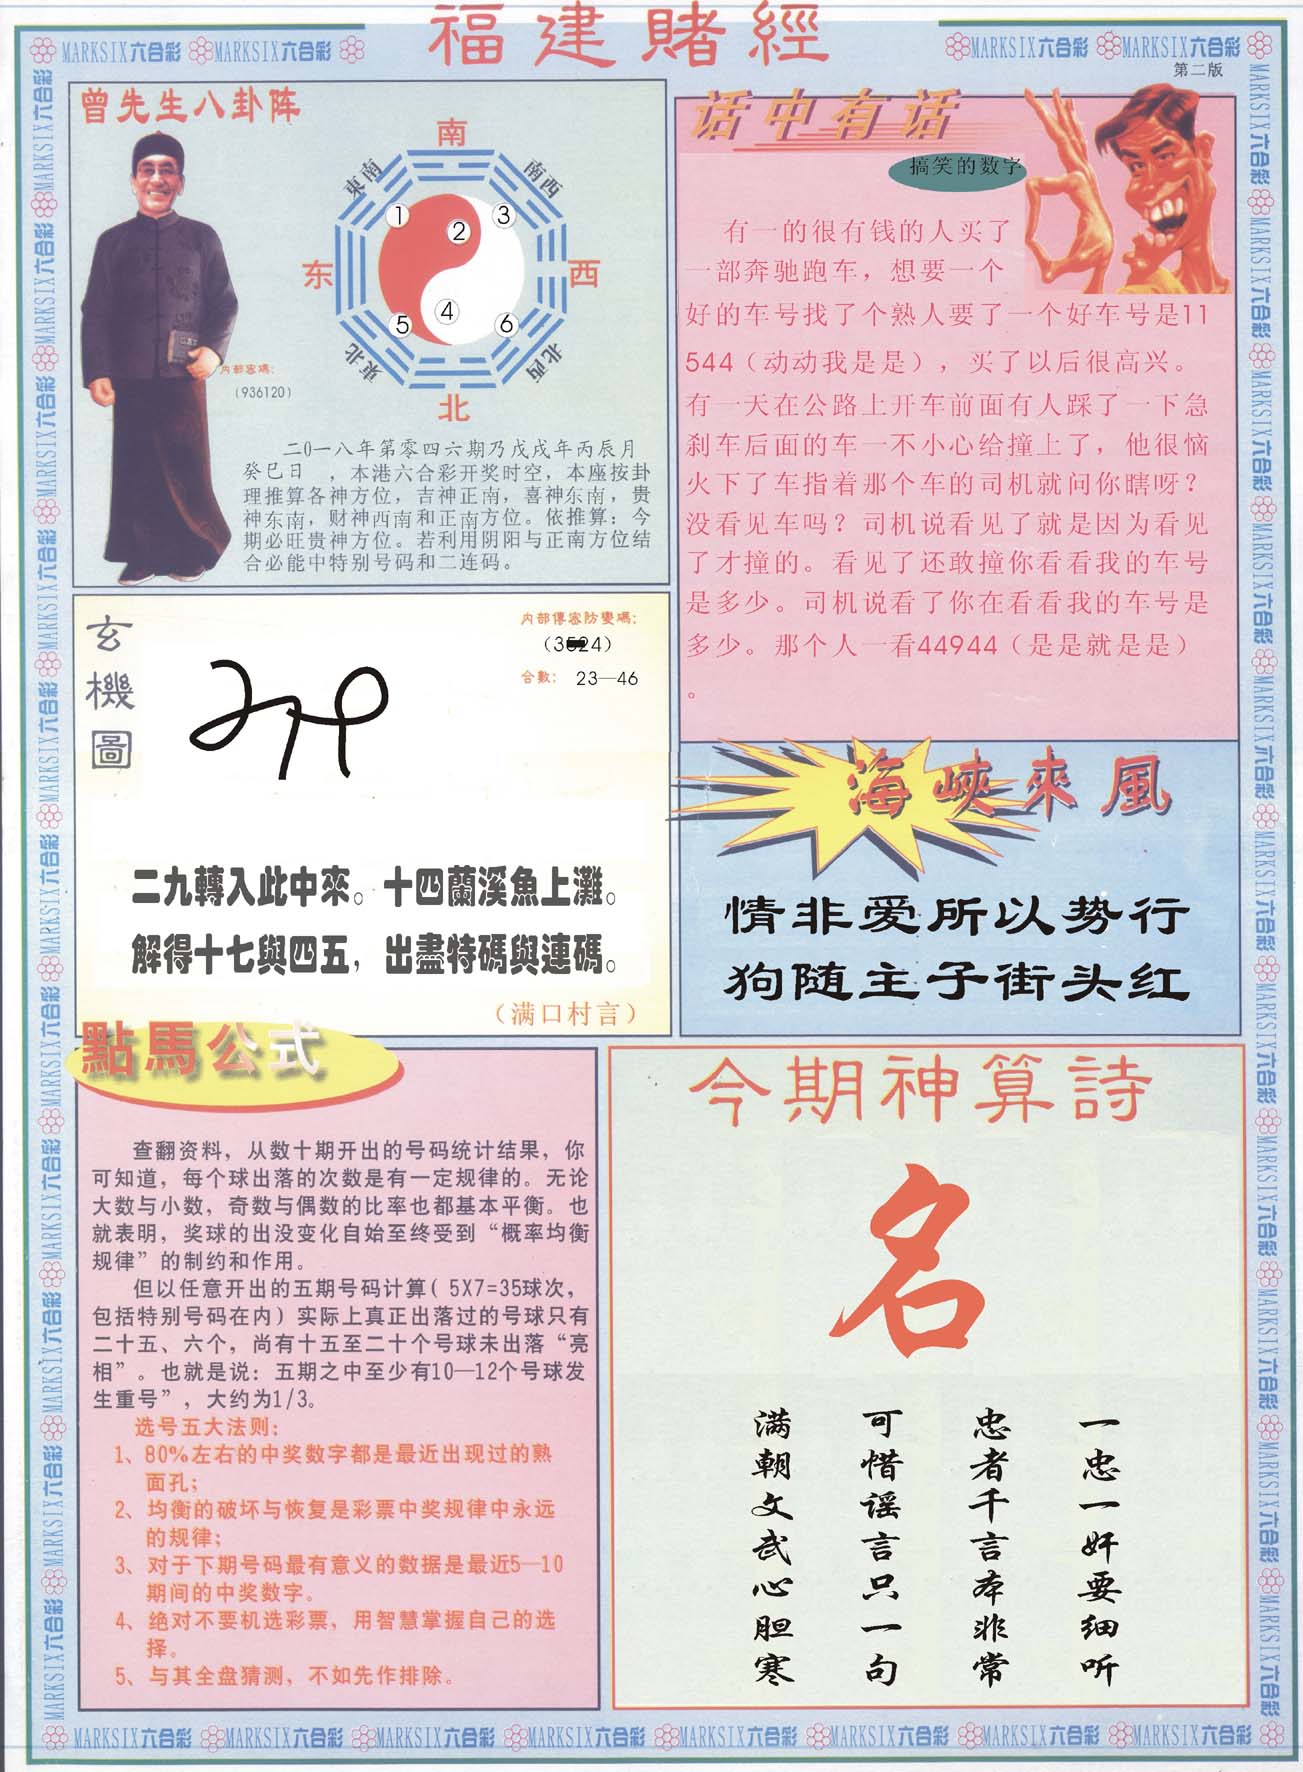 福建賭經
MARKSIX六合彩 MARKSIX六合彩
MARKSIX六合彩 MARKSIX六合彩
第二版
曾先生八卦阵
南
東南
南西
1
2
3
东
西
4
5
6
東北
北西
北
内部密碼:
(936120)
二0一八年第零四六期乃戊戌年丙辰月
癸巳日 ，本港六合彩开奖时空，本座按卦
理推算各神方位，吉神正南，喜神东南，贵
神东南，财神西南和正南方位。依推算：今
期必旺贵神方位。若利用阴阳与正南方位结
合必能中特别号码和二连码。
话中有话
搞笑的数字
有一的很有钱的人买了
一部奔驰跑车，想要一个
好的车号找了个熟人要了一个好车号是11
544（动动我是是），买了以后很高兴。
有一天在公路上开车前面有人踩了一下急
刹车后面的车一不小心给撞上了，他很恼
火下了车指着那个车的司机就问你瞎呀？
没看见车吗？司机说看见了就是因为看见
了才撞的。看见了还敢撞你看看我的车号
是多少。司机说看了你在看看我的车号是
多少。那个人一看44944（是是就是是）
。
玄機圖
内部傳密防變碼:
合數: 23—46
二九轉入此中來。十四蘭溪魚上灘。
解得十七與四五，出盡特碼與連碼。
（满口村言）
海峽來風
情非爱所以势行
狗随主子街头红
點馬公式
查翻资料，从数十期开出的号码统计结果，你
可知道，每个球出落的次数是有一定规律的。无论
大数与小数，奇数与偶数的比率也都基本平衡。也
就表明，奖球的出没变化自始至终受到“概率均衡
规律”的制约和作用。
但以任意开出的五期号码计算( 5X7=35球次，
包括特别号码在内）实际上真正出落过的号球只有
二十五、六个，尚有十五至二十个号球未出落“亮
相”。也就是说：五期之中至少有10—12个号球发
生重号”，大约为1/3。
选号五大法则：
1、80%左右的中奖数字都是最近出现过的熟
面孔；
2、均衡的破坏与恢复是彩票中奖规律中永远
的规律；
3、对于下期号码最有意义的数据是最近5—10
期间的中奖数字。
4、绝对不要机选彩票，用智慧掌握自己的选
择。
5、与其全盘猜测，不如先作排除。
今期神算詩
名
一忠一奸要细听
忠者千言本非常
可惜谣言只一句
满朝文武心胆寒
MARKSIX六合彩 MARKSIX六合彩 MARKSIX六合彩 MARKSIX六合彩 MARKSIX六合彩 MARKSIX六合彩 MARKSIX六合彩 MARKSIX六合彩